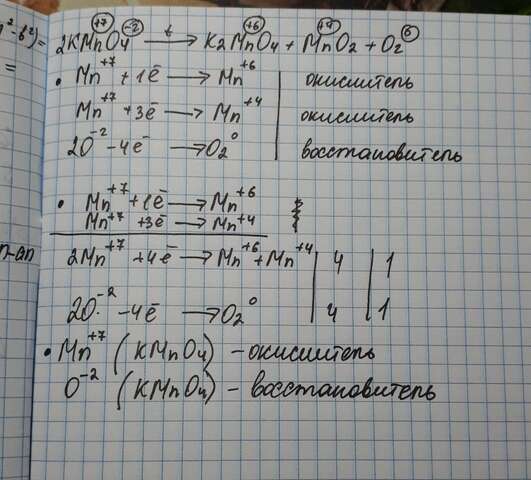 n²-b²)=
=
2KMnO₄ →t K₂MnO₄ + MnO₂ + O₂
+7 -2 +6 +4 0
• Mn⁺⁷ + 1ē → Mn⁺⁶ | окислитель
Mn⁺⁷ + 3ē → Mn⁺⁴ | окислитель
2O⁻² - 4ē → O₂⁰ | восстановитель
• Mn⁺⁷ + 1ē → Mn⁺⁶
Mn⁺⁷ + 3ē → Mn⁺⁴
2Mn⁺⁷ + 4ē → Mn⁺⁶ + Mn⁺⁴ | 4 | 1
2O⁻² - 4ē → O₂⁰ | 4 | 1
• Mn⁺⁷ (KMnO₄) - окислитель
O⁻² (KMnO₄) - восстановитель